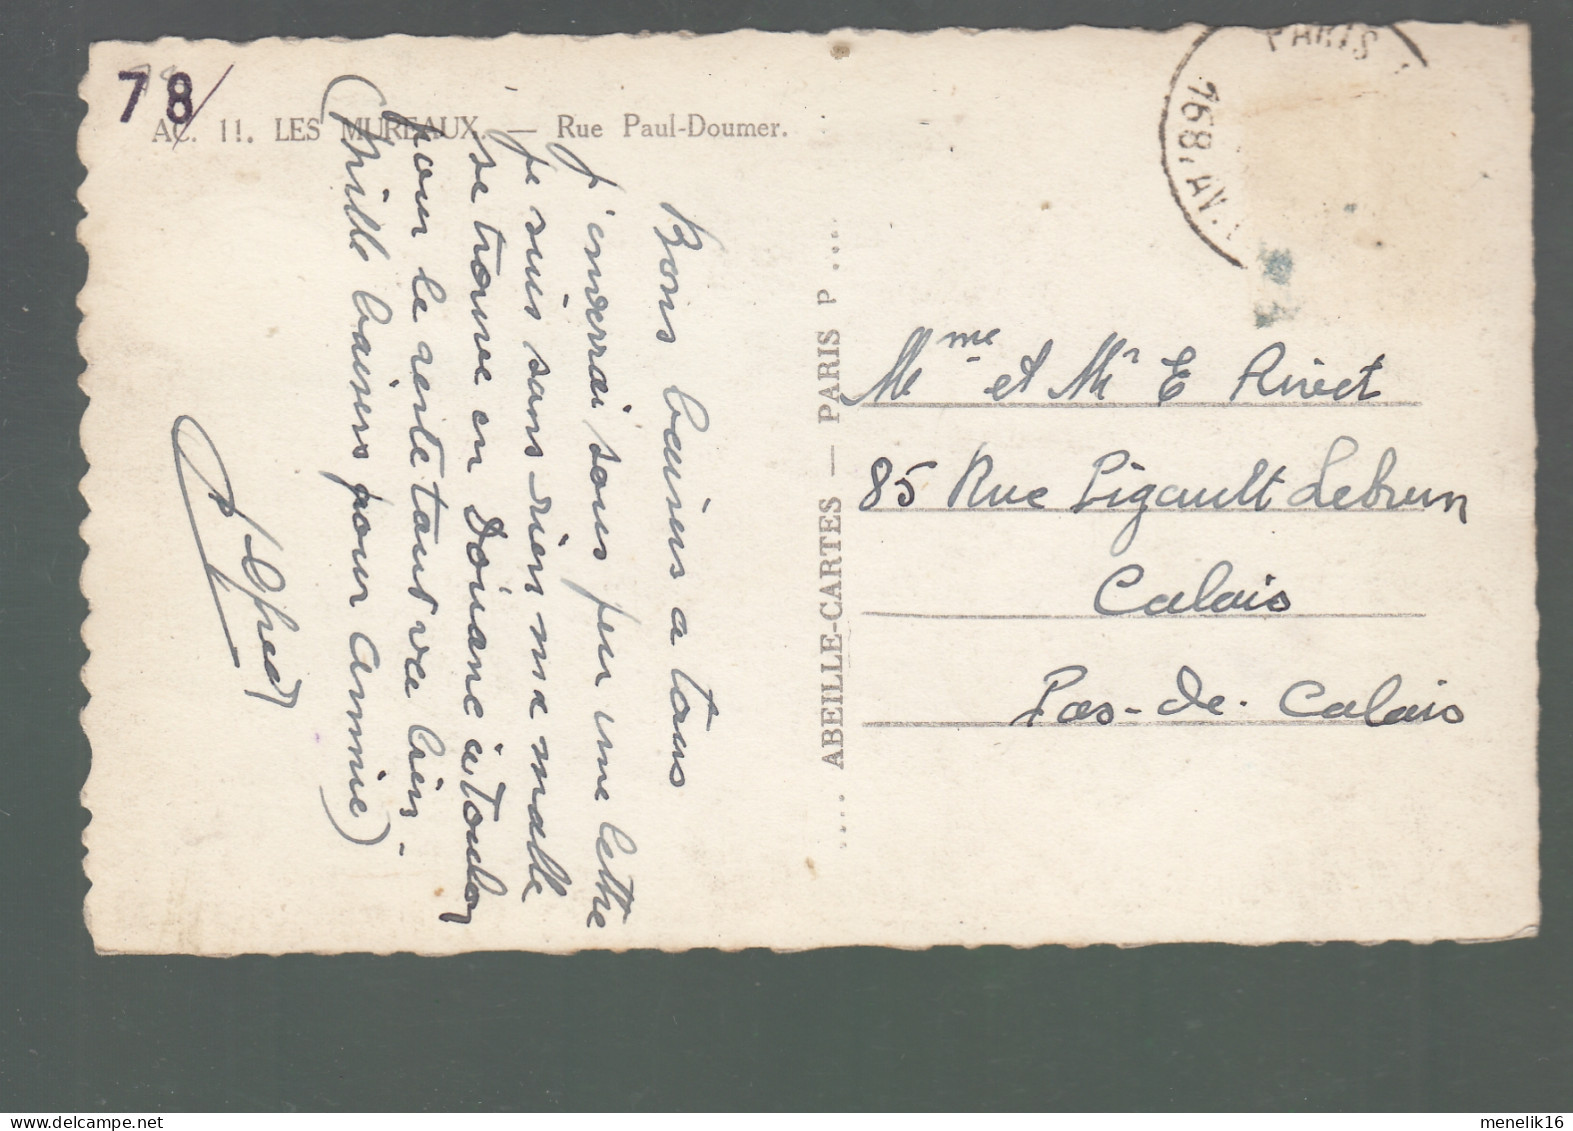 78
AC. 11. LES MUREAUX. — Rue Paul-Doumer.
Bons baisers a tous
j'enverrai sous peu une lettre
je suis sans rien ma malle
se trouve en Douane à Toulon
pour le reste tout va bien.
(Mille baisers pour Annie)
Alfred
ABEILLE-CARTES — PARIS
PARIS
768, AV
Mme et Mr E Rivet
85 Rue Pigault Lebrun
Calais
Pas-de-Calais
menelik16